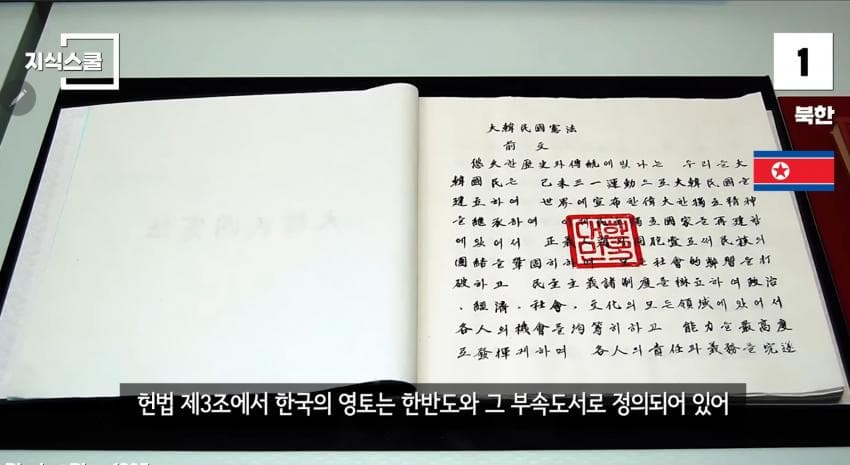 지식스쿨
1
북한
大韓民國憲法
前文
悠久한 歷史와 傳統에 빛나는 우리들 大
韓國民은 己未三一運動으로 大韓民國을
建立하여 世界에 宣布한 偉大한 獨立精神
을 繼承하여 獨立國家를 再建함
에 있어서 正義人道와 同胞愛로써 民族의
團結을 鞏固히하며 모든 社會的 弊習을 打
破하고 民主主義諸制度를 樹立하여 政治
, 經濟, 社會, 文化의 모든 領域에 있어서
各人의 機會를 均等히하고 能力을 最高度
로 發揮케하며 各人의 責任과 義務를 完遂
대한민국
헌법 제3조에서 한국의 영토는 한반도와 그 부속도서로 정의되어 있어